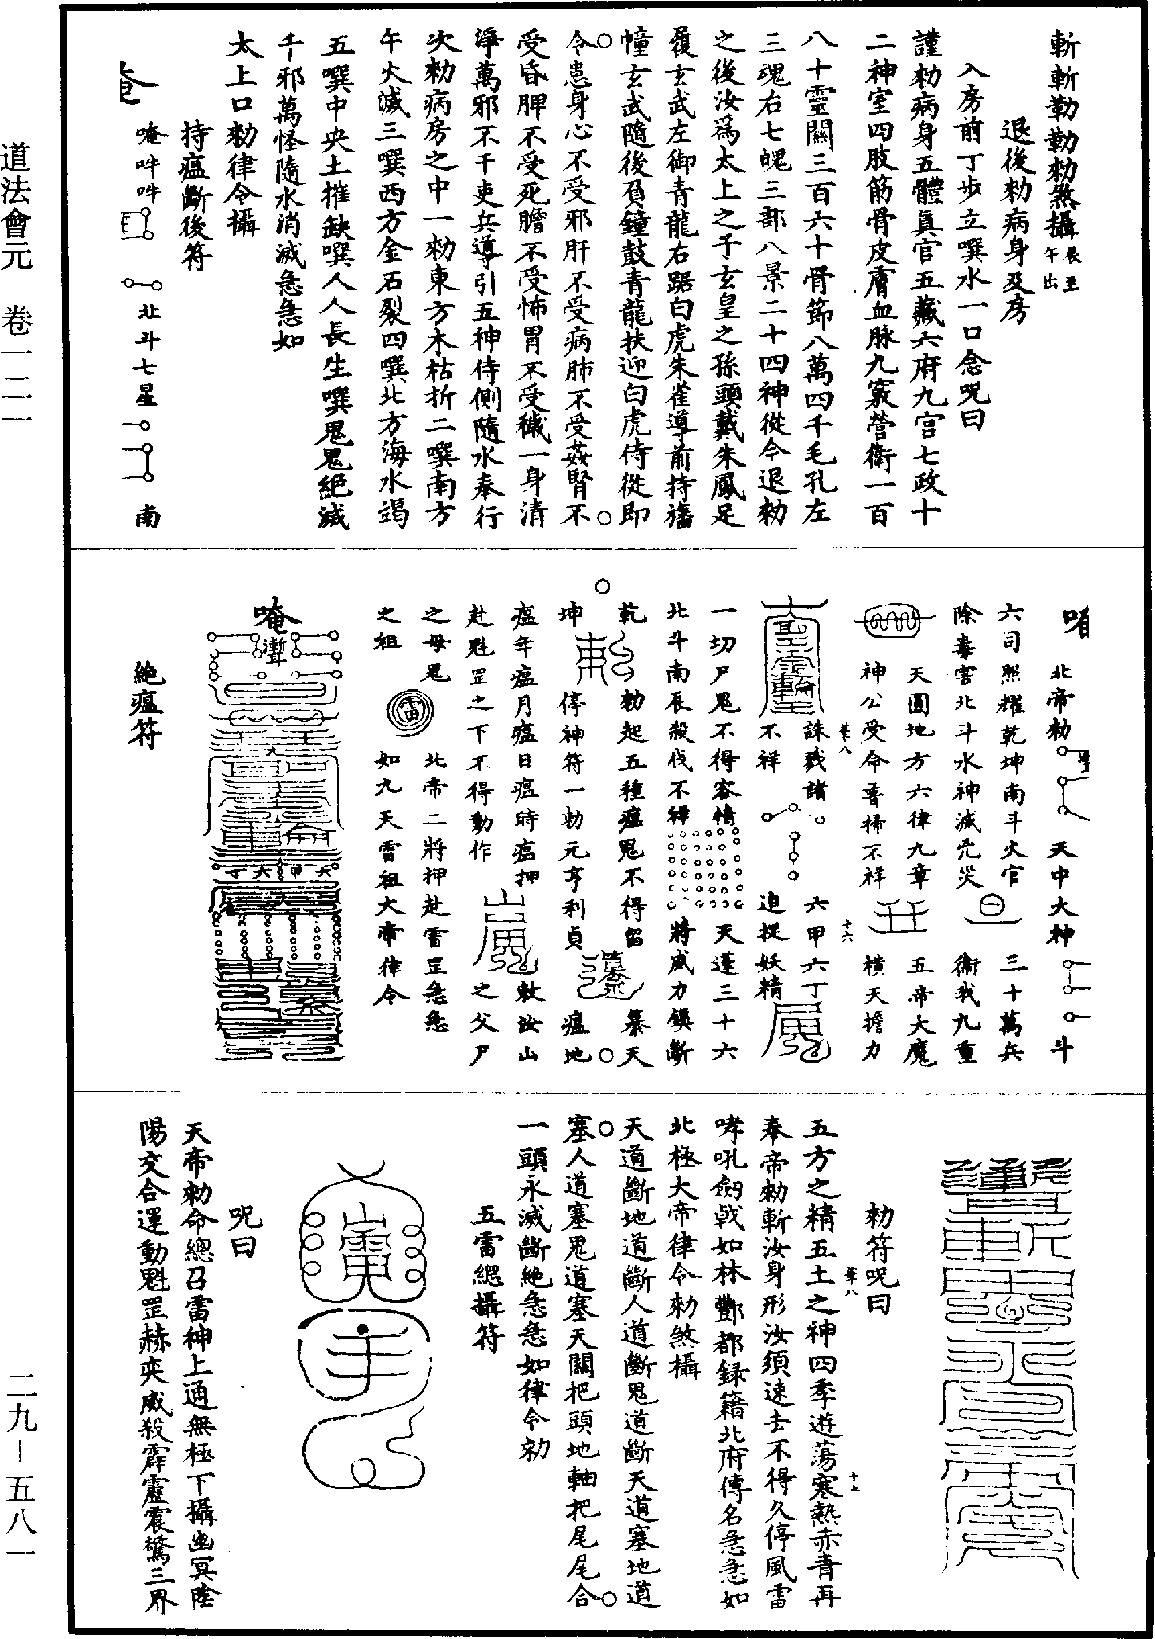 道法會元　卷一二一
二九—五八一
斬斬勒勒勑煞攝辰至午出
退後勑病身及房
入房前丁步立噀水一口念咒曰
謹勑病身五體真官五藏六府九宮七政十
二神室四肢筋骨皮膚血脉九竅營衛一百
八十靈關三百六十骨節八萬四千毛孔左
三魂右七魄三部八景二十四神從今退勑
之後汝爲太上之子玄皇之孫頭戴朱鳳足
履玄武左御青龍右踞白虎朱雀導前持旛
幢玄武隨後負鐘鼓青龍扶迎白虎侍從即
令患身心不受邪肝不受病肺不受姦腎不
受昏脾不受死膽不受怖胃不受穢一身清
淨萬邪不干吏兵導引五神侍側隨水奉行
次勑病房之中一勑東方木枯折二噀南方
午火滅三噀西方金石裂四噀北方海水竭
五噀中央土摧缺噀人人長生噀鬼鬼絕滅
千邪萬怪隨水消滅急急如
太上口勑律令攝
持瘟斷後符
唵　唵吽吽　北斗七星　南
北帝勑　天中大神　斗
六司照耀乾坤南斗火官　三十萬兵
除毒害北斗水神滅凶災　衛我九重
天圓地方六律九章　五帝大魔
神公受命普掃不祥　橫天擔力
誅戮諸　六甲六丁
巷八　十六
不祥　追捉妖精
一切尸鬼不得容情　天蓬三十六
北斗南辰殺伐不歸　將威力鎮斷
乾　勑起五種瘟鬼不得留　篆天
坤　停神符一勑元亨利貞　瘟地
瘟年瘟月瘟日瘟時瘟押　敕汝山
赴魁罡之下不得動作　之父尸
之母鬼　北帝二將押赴雷罡急急
之祖　雷　如九天雷祖大帝律令
唵
絕瘟符
勑符咒曰
五方之精五土之神四季遊蕩寒熱赤青再
奉帝勑斬汝身形汝須速去不得久停風雷
哮吼劒戟如林酆都錄籍北府傳名急急如
北極大帝律令勑煞攝
天道斷地道斷人道斷鬼道斷天道塞地道
塞人道塞鬼道塞天關把頭地軸把尾尾合
一頭永滅斷絕急急如律令勑
五雷總攝符
咒曰
天帝勑命總召雷神上通無極下攝幽冥陰
陽交合運動魁罡赫奕威殺霹靂震驚三界